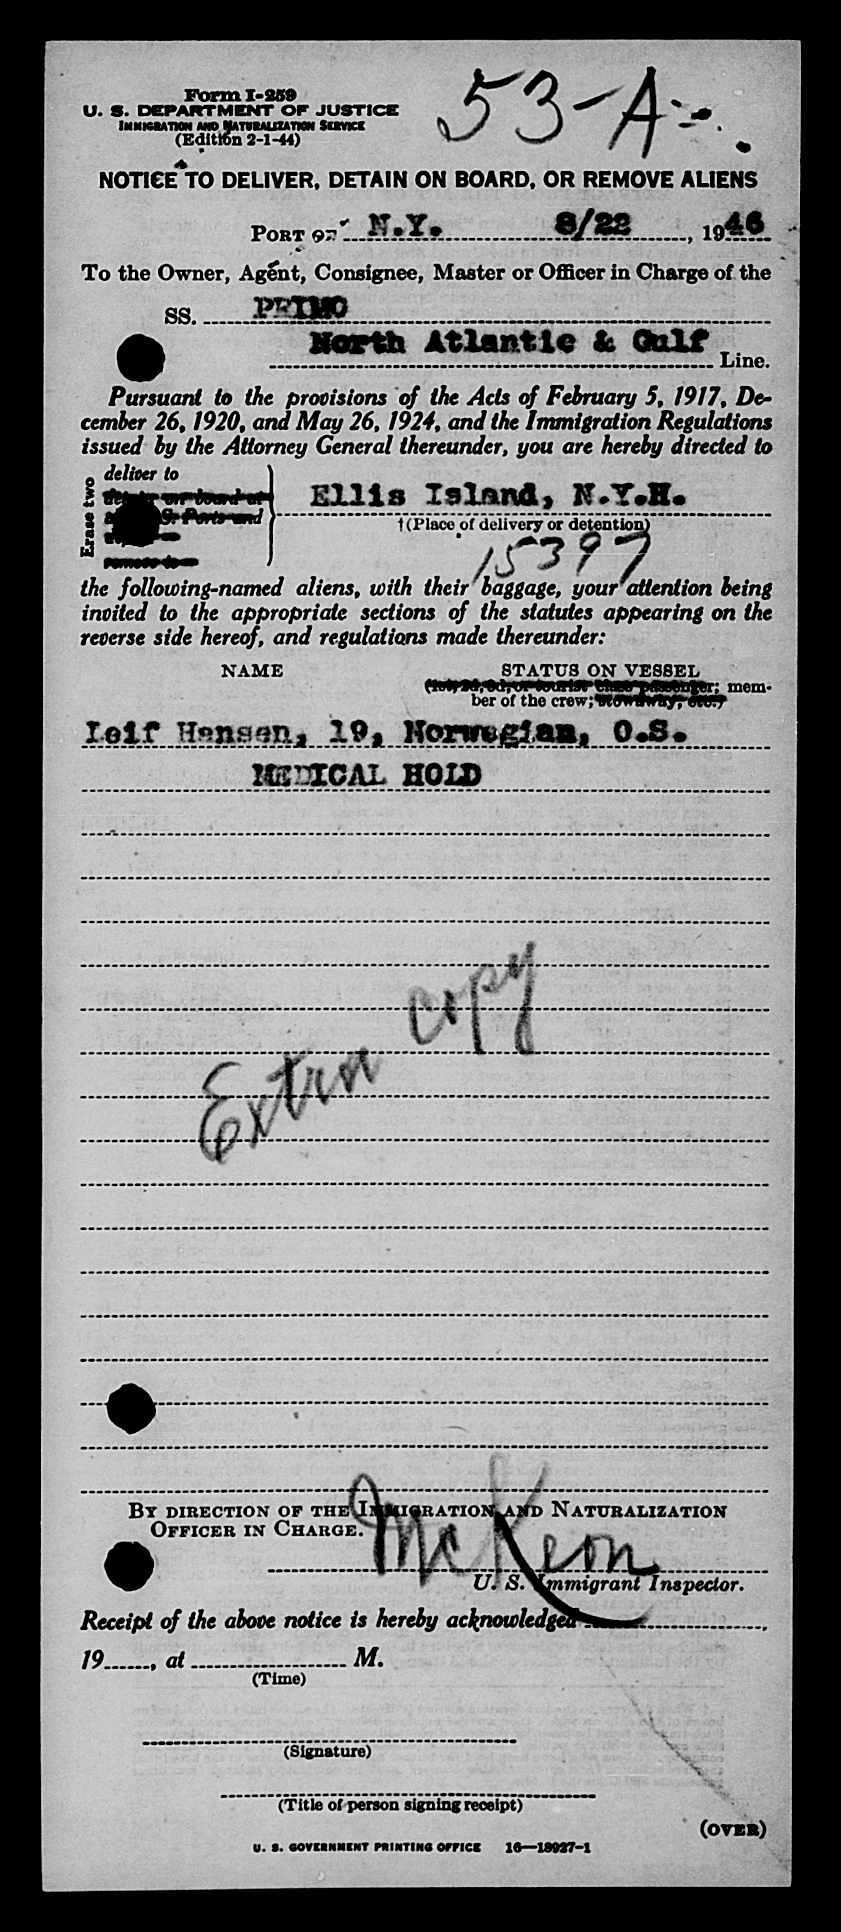 Form I-259
53-A-
U. S. DEPARTMENT OF JUSTICE
IMMIGRATION AND NATURALIZATION SERVICE
(Edition 2-1-44)
NOTICE TO DELIVER, DETAIN ON BOARD, OR REMOVE ALIENS
PORT OF N.Y. 8/22, 1946
To the Owner, Agent, Consignee, Master or Officer in Charge of the
SS. PRIMO
North Atlantic & Gulf Line.
Pursuant to the provisions of the Acts of February 5, 1917, De-
cember 26, 1920, and May 26, 1924, and the Immigration Regulations
issued by the Attorney General thereunder, you are hereby directed to
Erase two
deliver to
detain on board at
S. Ports and
remove to
Ellis Island, N.Y.H.
†(Place of delivery or detention)
15397
the following-named aliens, with their baggage, your attention being
invited to the appropriate sections of the statutes appearing on the
reverse side hereof, and regulations made thereunder:
NAME STATUS ON VESSEL
(1st, 2d, 3d, or tourist class passenger; mem-
ber of the crew; stowaway, etc.)
Leif Hansen, 19, Norwegian, O.S.
MEDICAL HOLD
Extra copy
BY DIRECTION OF THE IMMIGRATION AND NATURALIZATION
OFFICER IN CHARGE.
McKeon
U. S. Immigrant Inspector.
Receipt of the above notice is hereby acknowledged
19, at M.
(Time)
(Signature)
(Title of person signing receipt)
(OVER)
U. S. GOVERNMENT PRINTING OFFICE 16—18927-1